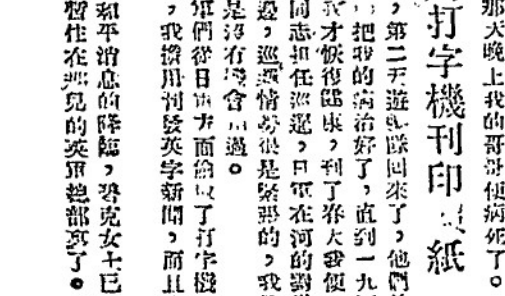 那天晚上我的哥哥便病死了。
打字機刊印紙
，第二天遊擊隊回來了，他們
把我的病治好了，直到一九
我才恢復健康，到了春天我便
同志担任巡邏，日軍在河的對
邊，巡邏情勢很是緊張的，我
是沒有機會過。
軍們從日軍方面偷取了打字機
，我擔用刊發英字新聞，而且
和平消息的降臨，碧克女士已
暫住在那兒的英軍總部裏了。